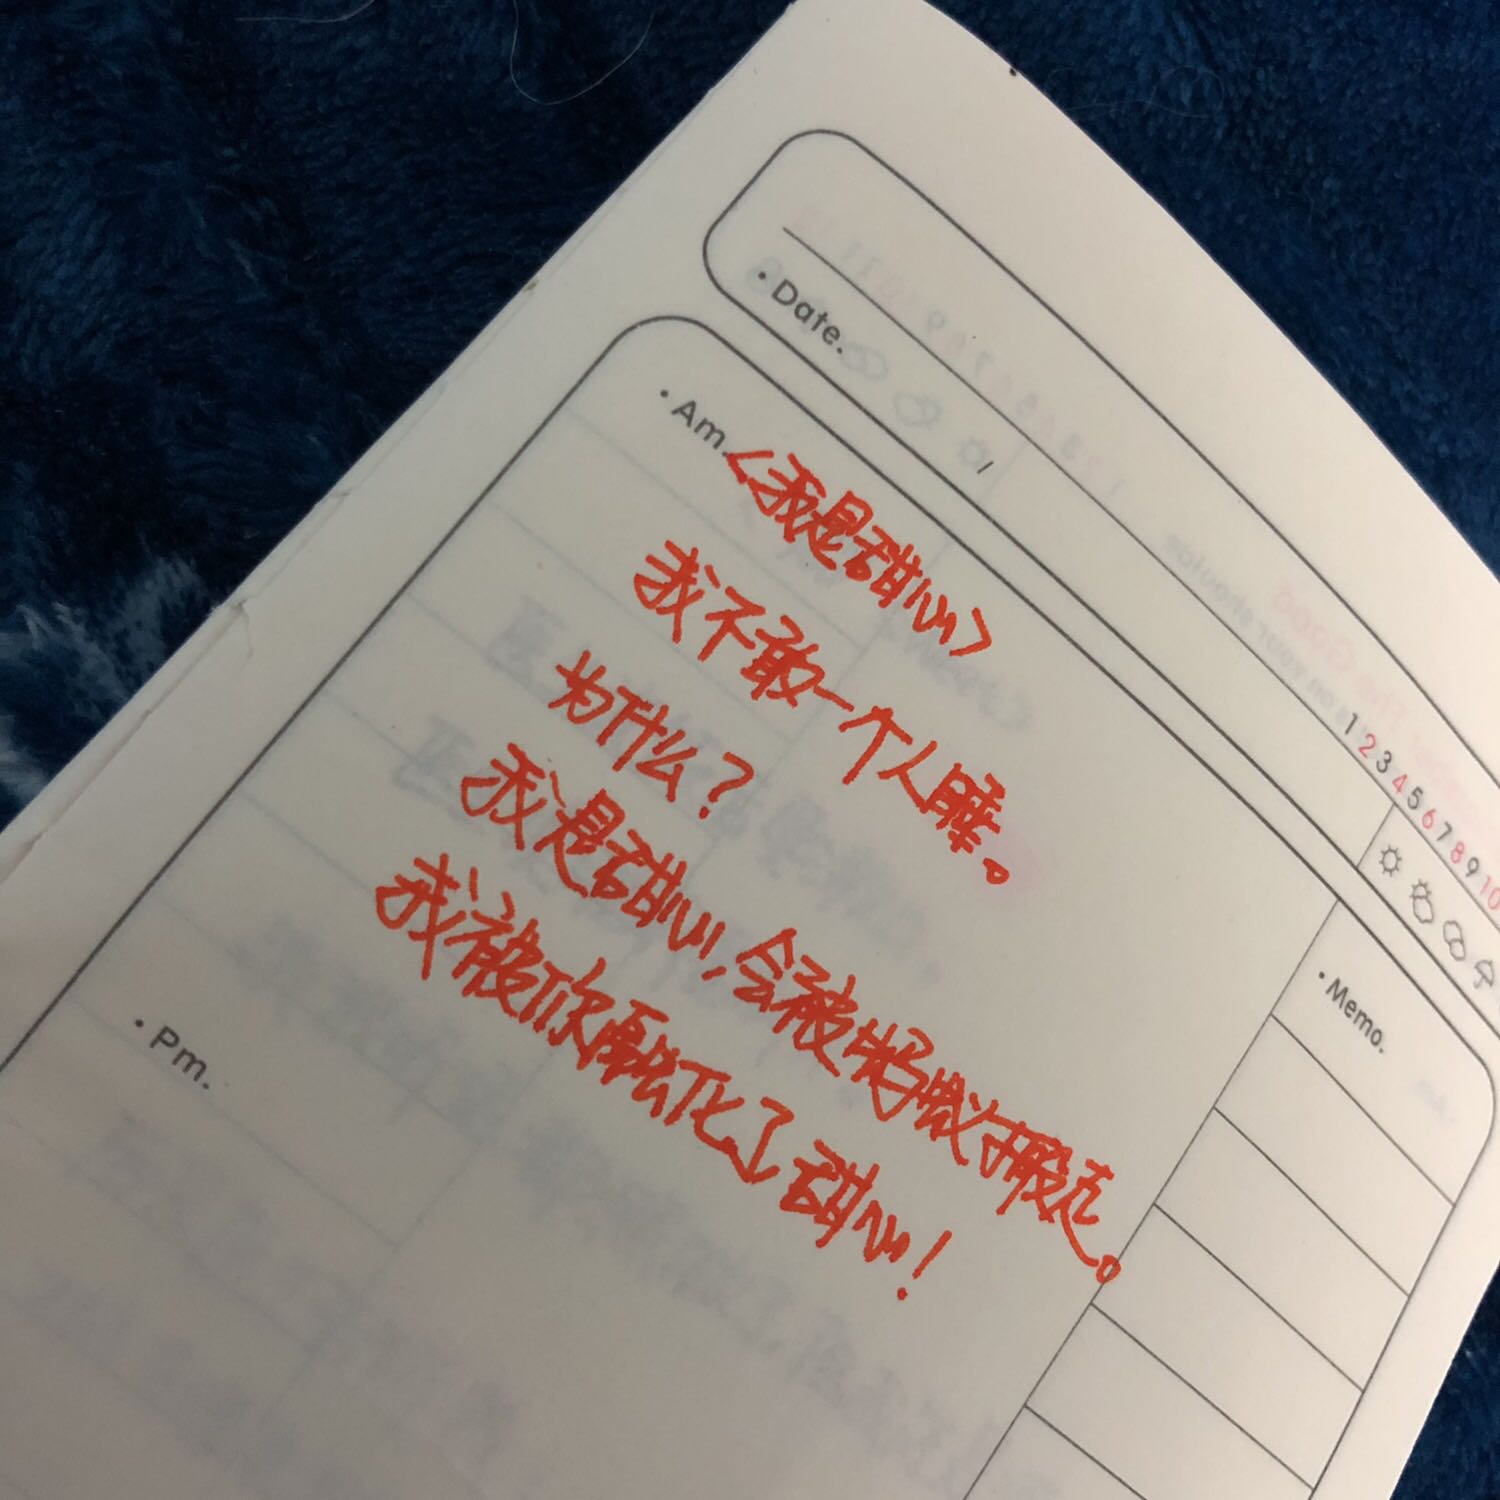 Date.
/
1 2 3 4 5 6 7 8 9 10
Am.
<我是甜心>
我不敢一个人睡。
为什么？
我是甜心，会被蚂蚁搬走。
我被你融化了甜心！
Memo.
Pm.